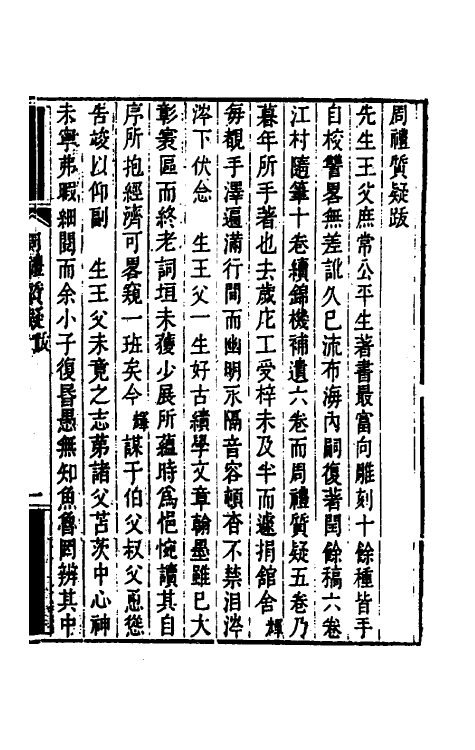 周禮質疑跋
先生王父庶常公平生著書最富向雕刻十餘種皆手
自校讐畧無差訛久已流布海內嗣復著閏餘稿六卷
江村隨筆十卷續錦機補遺六卷而周禮質疑五卷乃
暮年所手著也去歲庀工受梓未及半而遽捐館舍輝
每覩手澤遍滿行間而幽明永隔音容頓杳不禁泪涔
涔下伏念 生王父一生好古績學文章翰墨雖已大
彰寰區而終老詞垣未獲少展所蘊時為悒惋讀其自
序所抱經濟可畧窺一班矣今輝謀于伯父叔父慂慫
告竣以仰副 生王父未竟之志第諸父苫茨中心神
未寧弗暇細閱而余小子復昏愚無知魚魯罔辨其中
周禮質疑跋
一